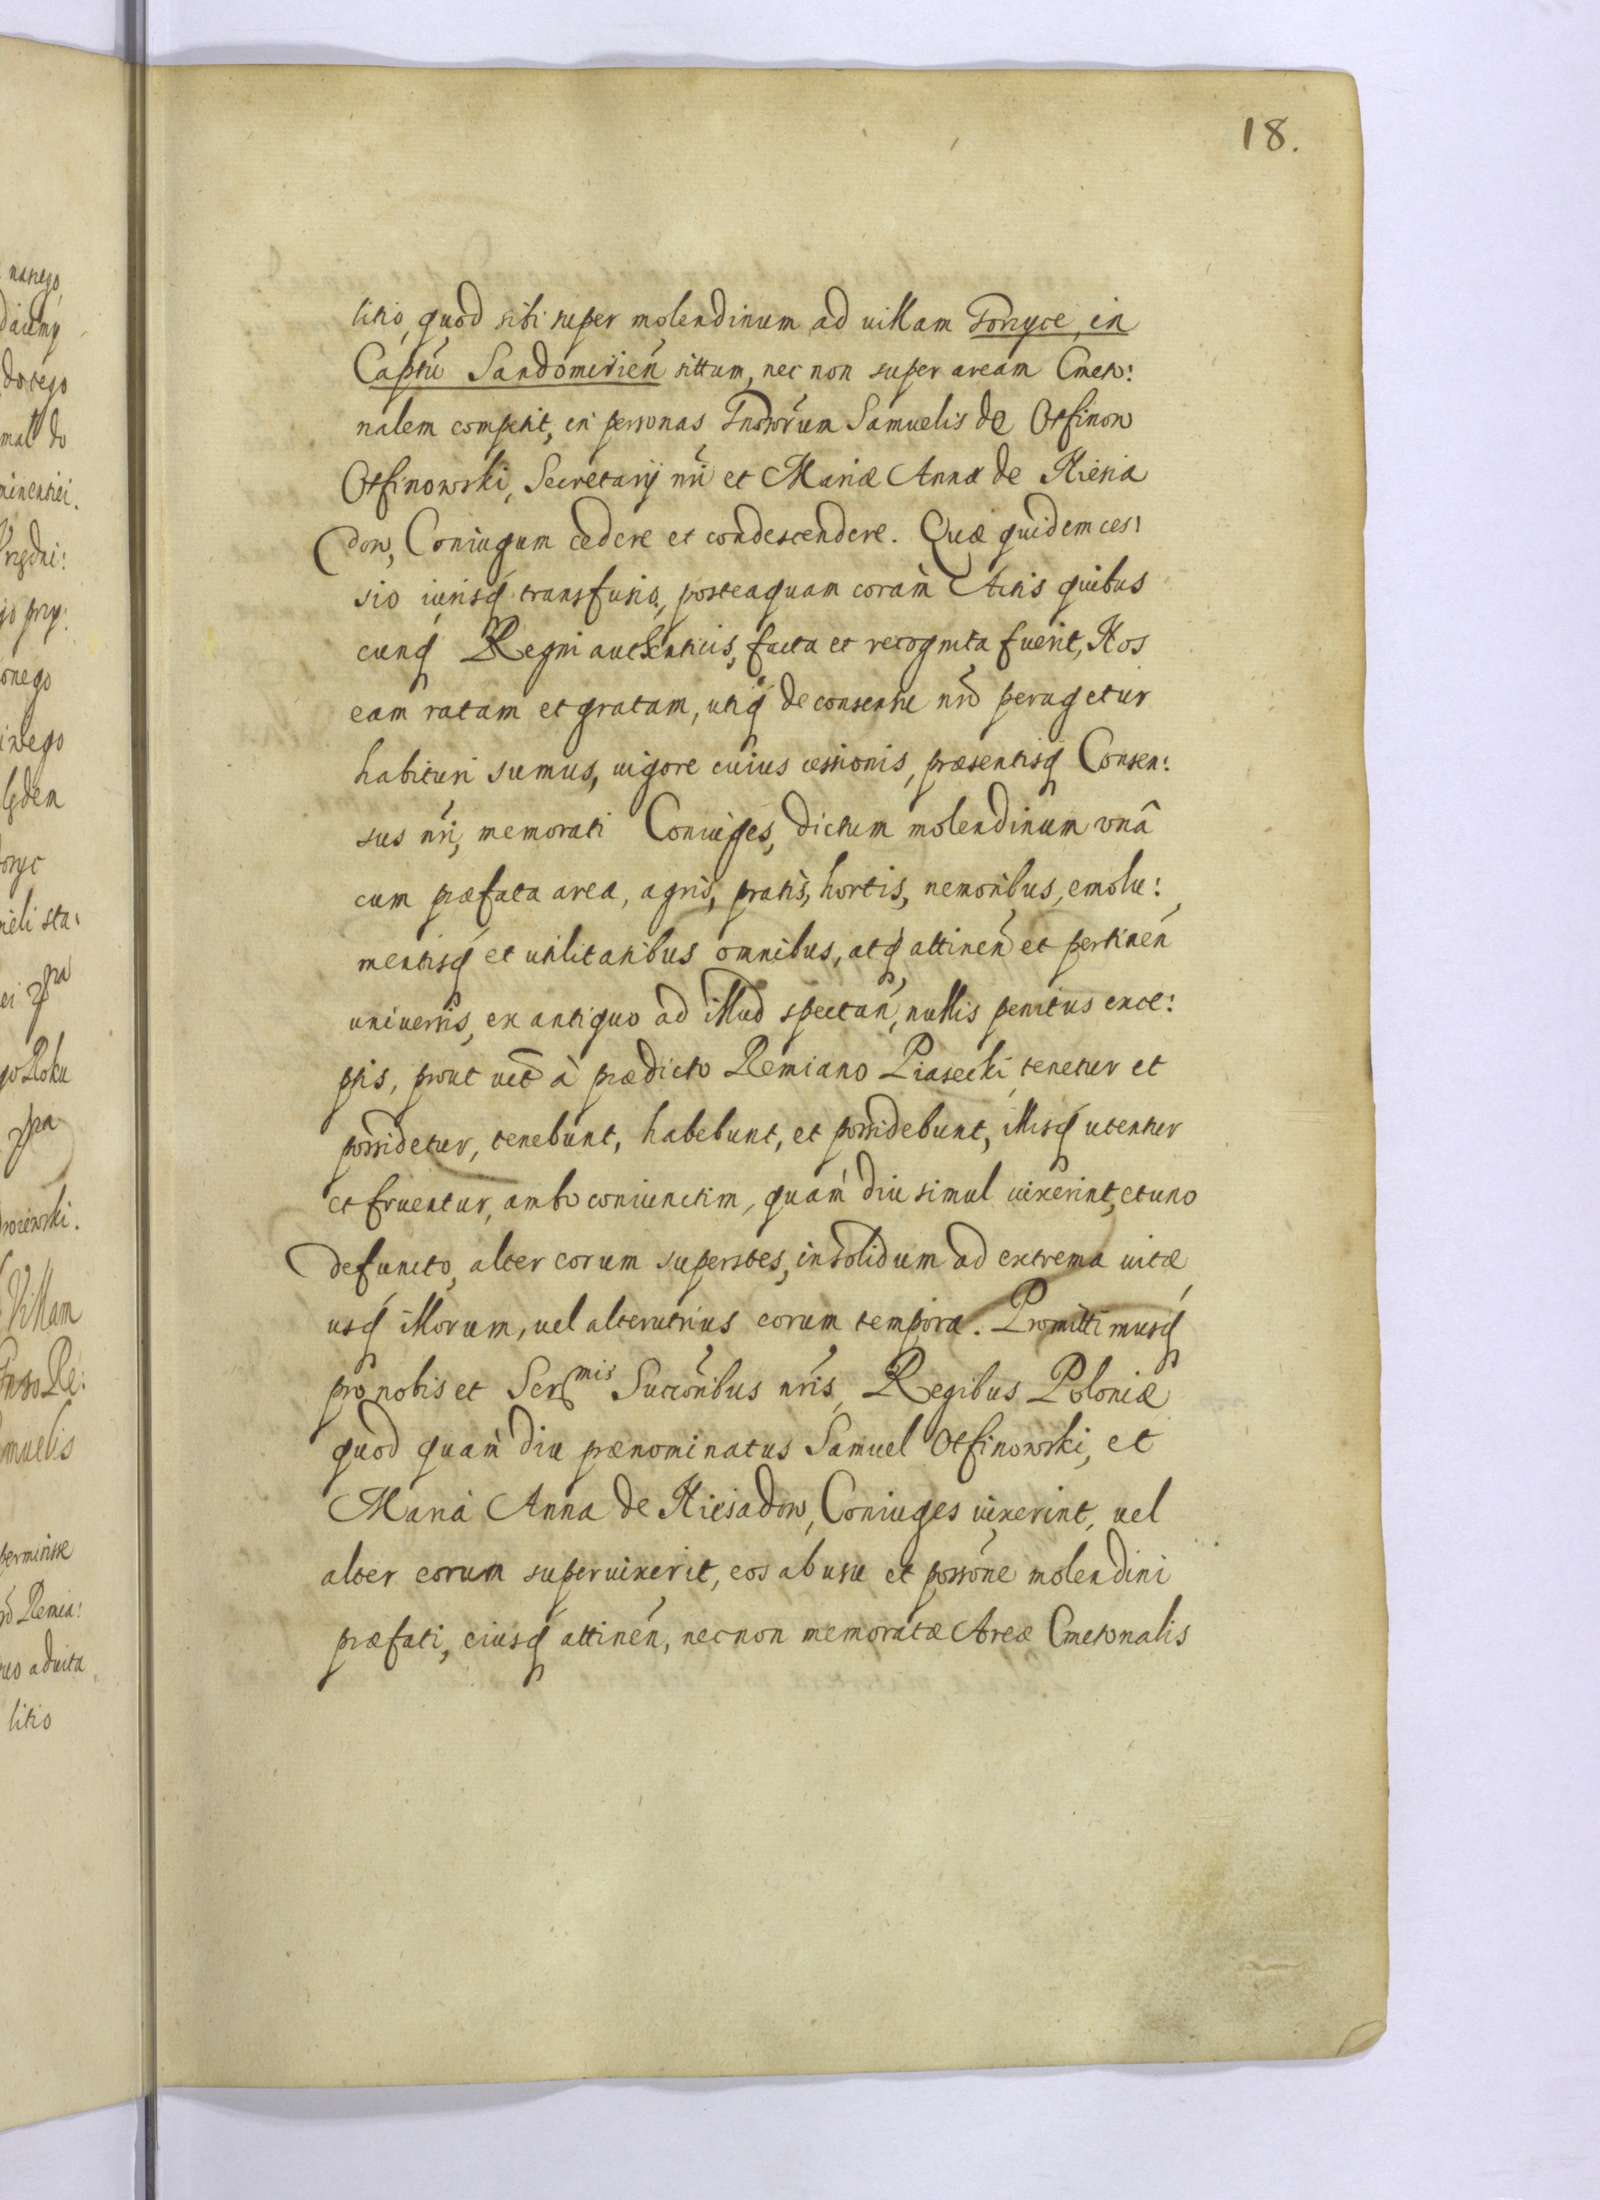 18.
litio, quod sibi super molendinum ad villam Gorzyce, in
Captũ Sandomirien̄ sittum, nec non super aream Cmeto:
nalem competit, in personas Gnosorūm Samuelis de Otfinow
Otfinowski, Secretarij nr̄i et Mariæ Annæ de Kiesia
dow, Coniugum cedere et condescendere. Quæ quidem ces:
sio iurisq́ transfusio, posteaquam coram Actis quibus
cunq́ Regni authenticis, facta et recognita fuerit, Nos
eam ratam et gratam, utiq́ de consensu nr̄o peragetur
habituri sumus, vigore cuius cessionis, præsentisq́ Consen:
sus nr̄i, memorati Coniuges, dictum molendinum vnâ
cum præfata area, agris, pratis, hortis, nemoribus, emolu:
mentisq́ et utilitatibus omnibus, atq́ attinen̄ et pertinen̄
universis, ex antiquo ad illud spectan̄, nullis penitus exce:
ptis, prout uti à prædicto Remiano Piasecki tenetur et
possidetur, tenebunt, habebunt, et possidebunt, illisq́ utentur
et fruentur, ambo coniunctim, quam diu simul vixerint, et uno
defuncto, alter eorum superstes, in solidum ad extrema vitæ
usq́ illorum, vel alterutrius eorum tempora. Promittimusq́
pro nobis et Ser^mis Succōribus nr̄is, Regibus Poloniæ
quod quam diu prænominatus Samuel Otfinowski, et
Maria Anna de Kiesiadow, Coniuges vixerint, vel
alter eorum supervixerit, eos ab usu et possōne molendini
præfati, eiusq́ attinen̄, nec non memoratæ Areæ Cmetonalis